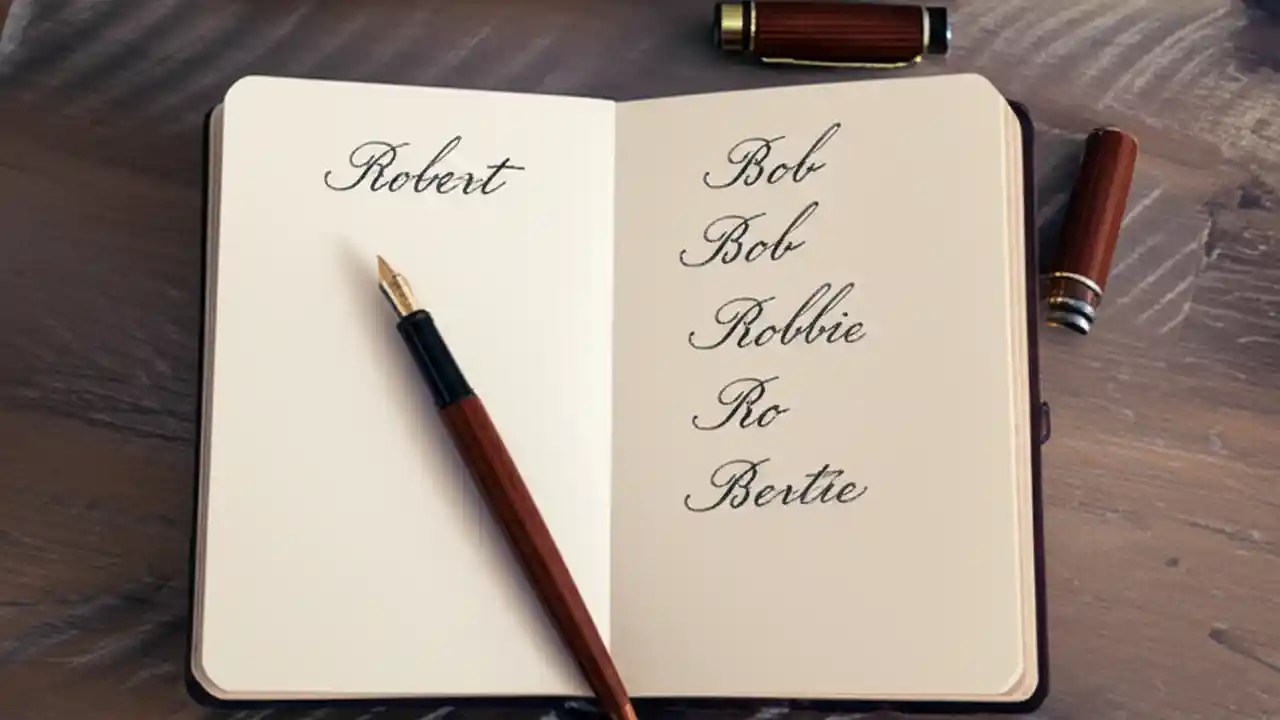 Robert
Bob
Bob
Robbie
Ro
Bertie